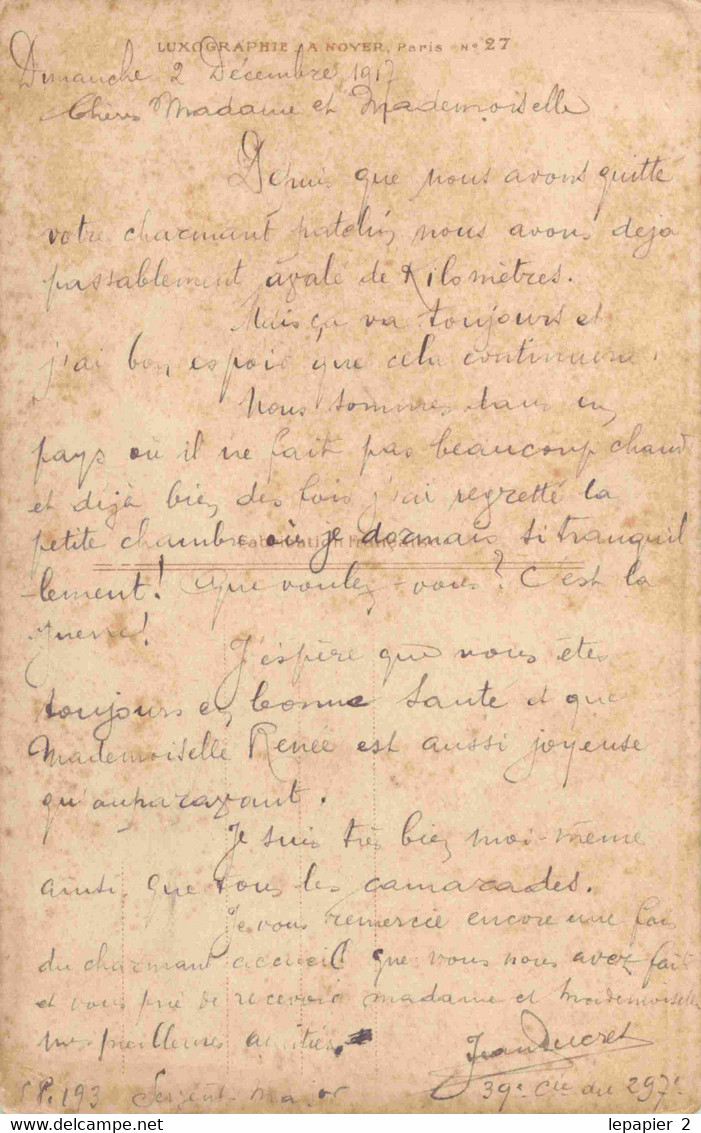 LUXOGRAPHIE A NOYER, Paris No 27
Dimanche 2 Décembre 1917
Chères Madame et Mademoiselle
Depuis que nous avons quitté
votre charmant patelin nous avons déjà
passablement avalé de Kilomètres.
Mais ça va toujours et
j'ai bon espoir que cela continuera.
Nous sommes dans un
pays où il ne fait pas beaucoup chaud
et déjà bien des fois j'ai regretté la
petite chambre où je dormais si tranquil
Fabrication Française
-lement! Que voulez-vous? C'est la
guerre!
J'espère que vous êtes
toujours en bonne santé et que
Mademoiselle Renée est aussi joyeuse
qu'auparavant.
Je suis très bien moi-même
ainsi que tous les camarades.
Je vous remercie encore une fois
du charmant accueil que vous nous avez fait
et vous prie de recevoir madame et Mademoiselle
mes meilleures amitiés.
Jean Ducret
SP. 193 Sergent-Major 39e Cie du 297e
lepapier_2